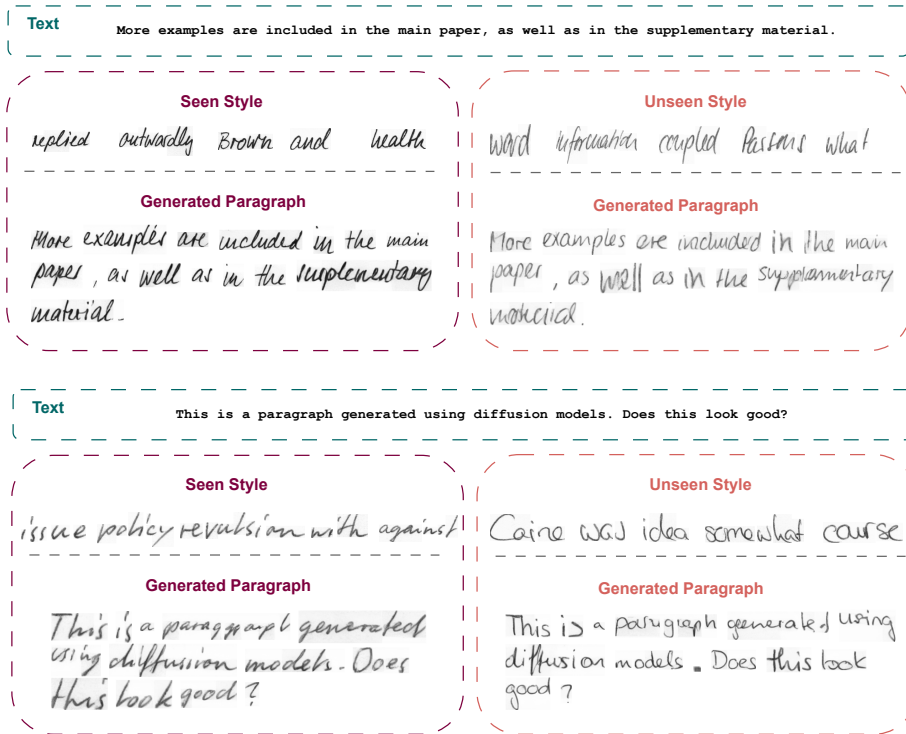 Text
More examples are included in the main paper, as well as in the supplementary material.
Seen Style
replied outwardly Brown and health
Generated Paragraph
More examples are included in the main
paper, as well as in the susplementary
material.
Unseen Style
word information coupled Parsons what
Generated Paragraph
More examples are inacluded in the main
paper, as well as in the supplamentary
moteciial.
Text
This is a paragraph generated using diffusion models. Does this look good?
Seen Style
issue policy revulsion with against
Generated Paragraph
This is a paraggraph generated
using diffusion models. Does
this look good?
Unseen Style
Caine was idea somewhat course
Generated Paragraph
This is a parugraph generated using
diffusion models. Does this look
good?